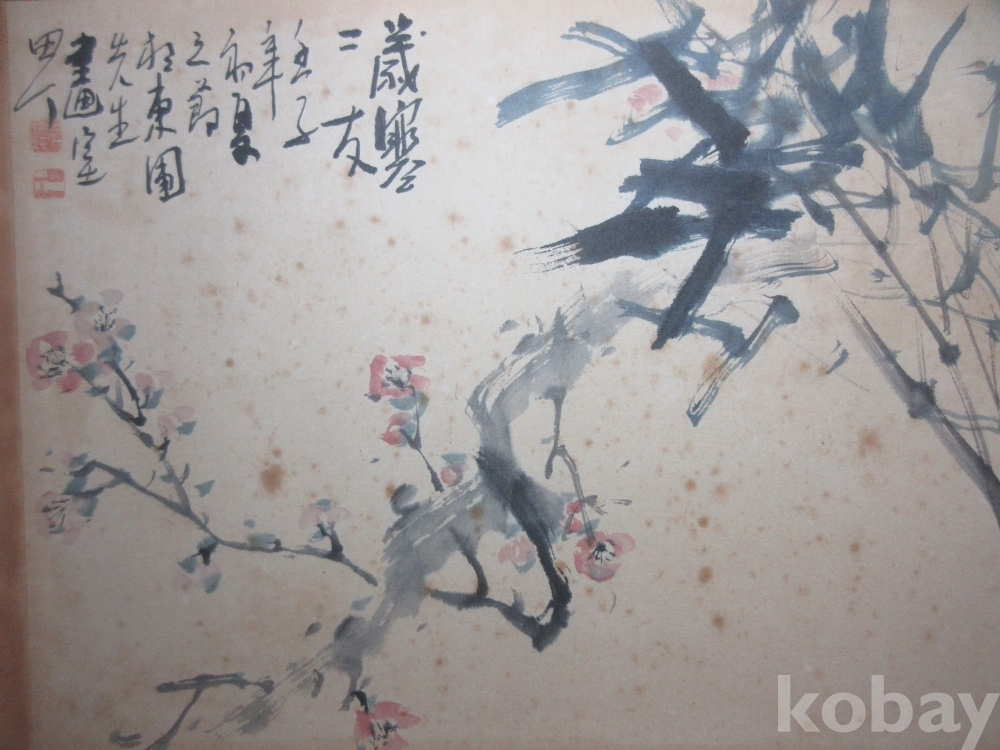 歲寒
二友
壬子
年
初夏
之節
於東園
先生
畫室
田丁
kobay